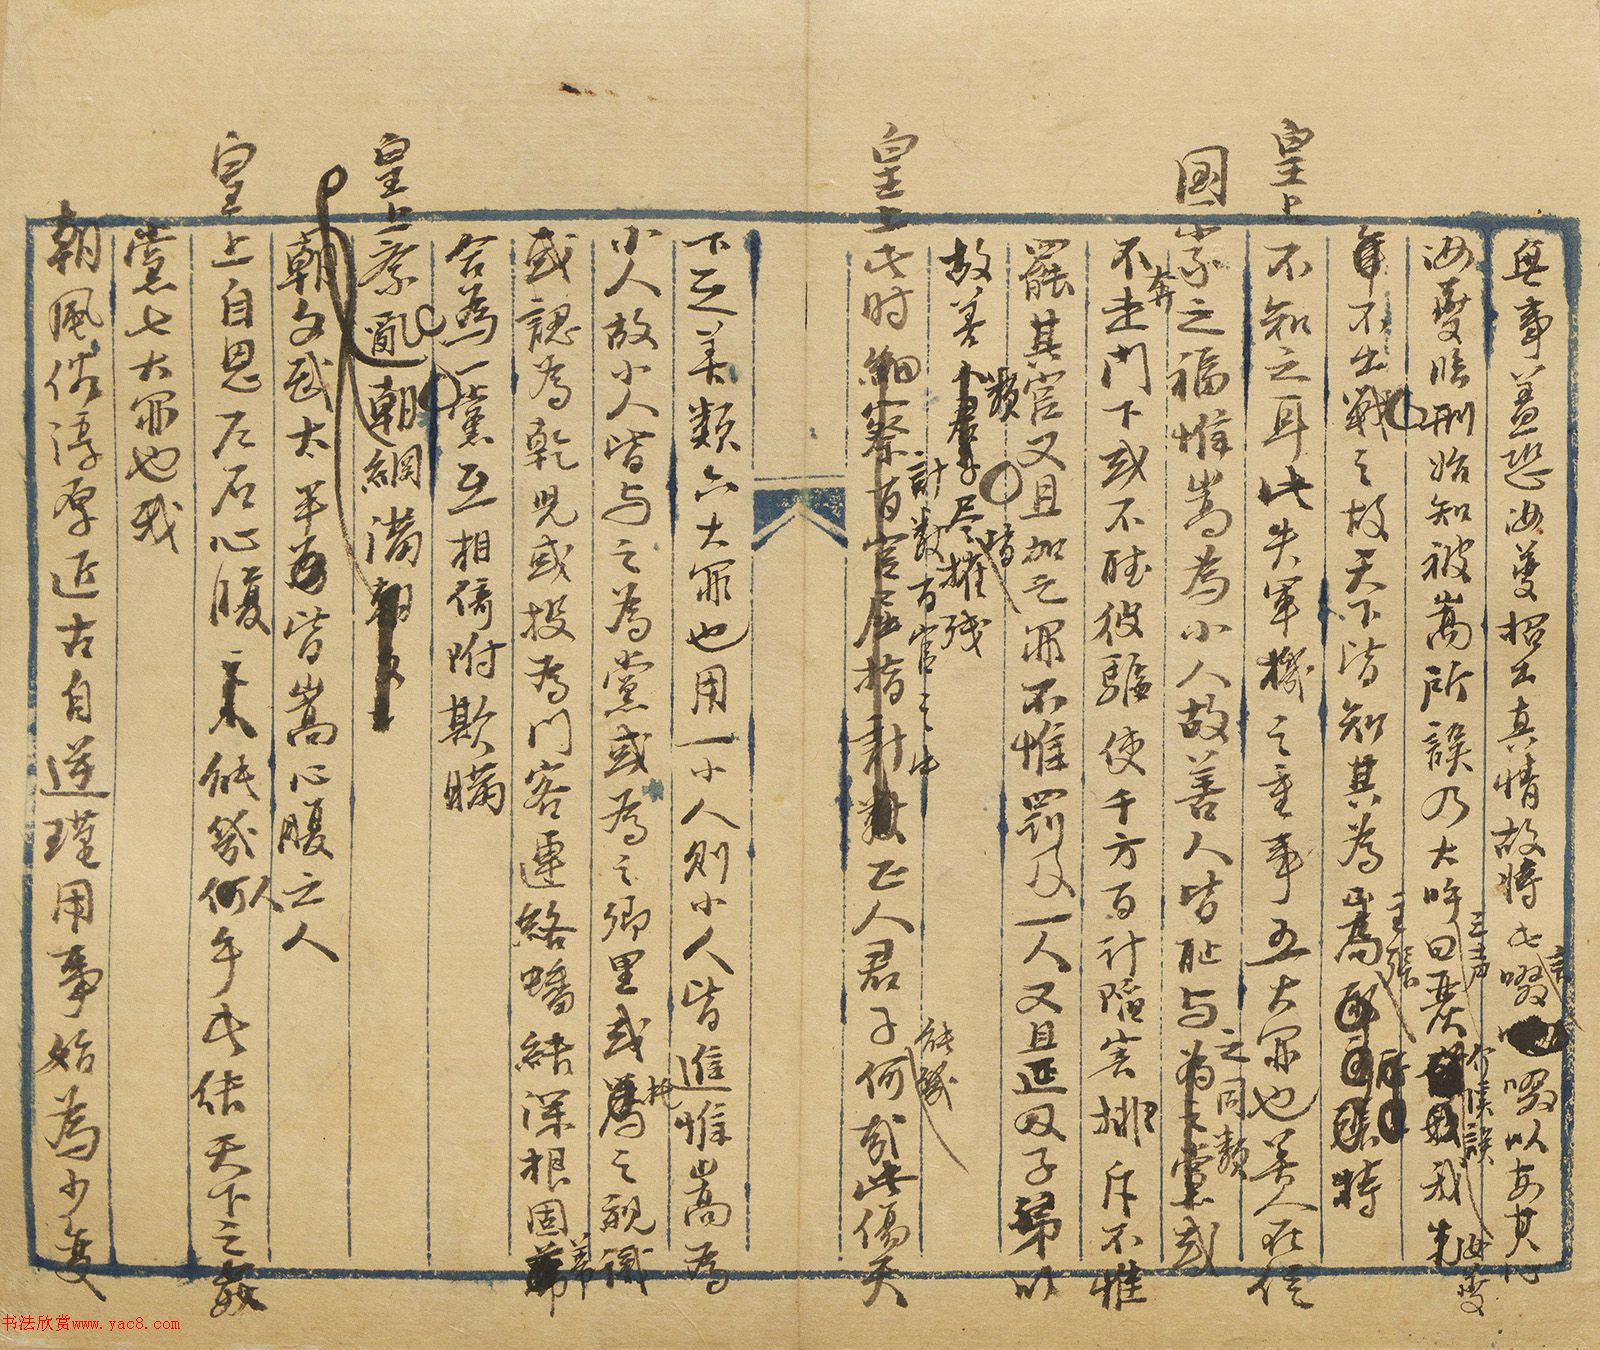 無事蓋恐汝夔招出真情故將此言啜以安其心
汝夔臨刑始知被嵩所誤乃大呼曰嚴嵩誤我
年不出戰之故天下皆知其為嵩主張特
皇上不知之耳此失軍機之重事五大罪也善人在位
国家之福惟嵩為小人故善人皆耻与之同類或
不奔走門下或不听彼驅使千方百计陷害排斥不惟
罷其官又且加之罪不惟罰及一人又且延及子弟以
故善類尽摧残
皇上此时細察百官屈指計數正人君子何
計數百官之中
能幾
哉此傷天
下之善類六大罪也用一小人則小人皆進惟嵩為
小人故小人皆与之為黨或為之鄉里或托為之親識
或認為乾児或投為門客連絡蟠結深根固蒂
合為一黨互相倚附欺瞞
皇上紊亂朝綱满朝
朝文武太半皆嵩心腹之人
皇上自思左右心腹之人能幾何乎此結天下之姦
黨七大罪也我
朝風俗淳厚近古自逆瑾用事始為少变
书法欣赏www.yac8.com